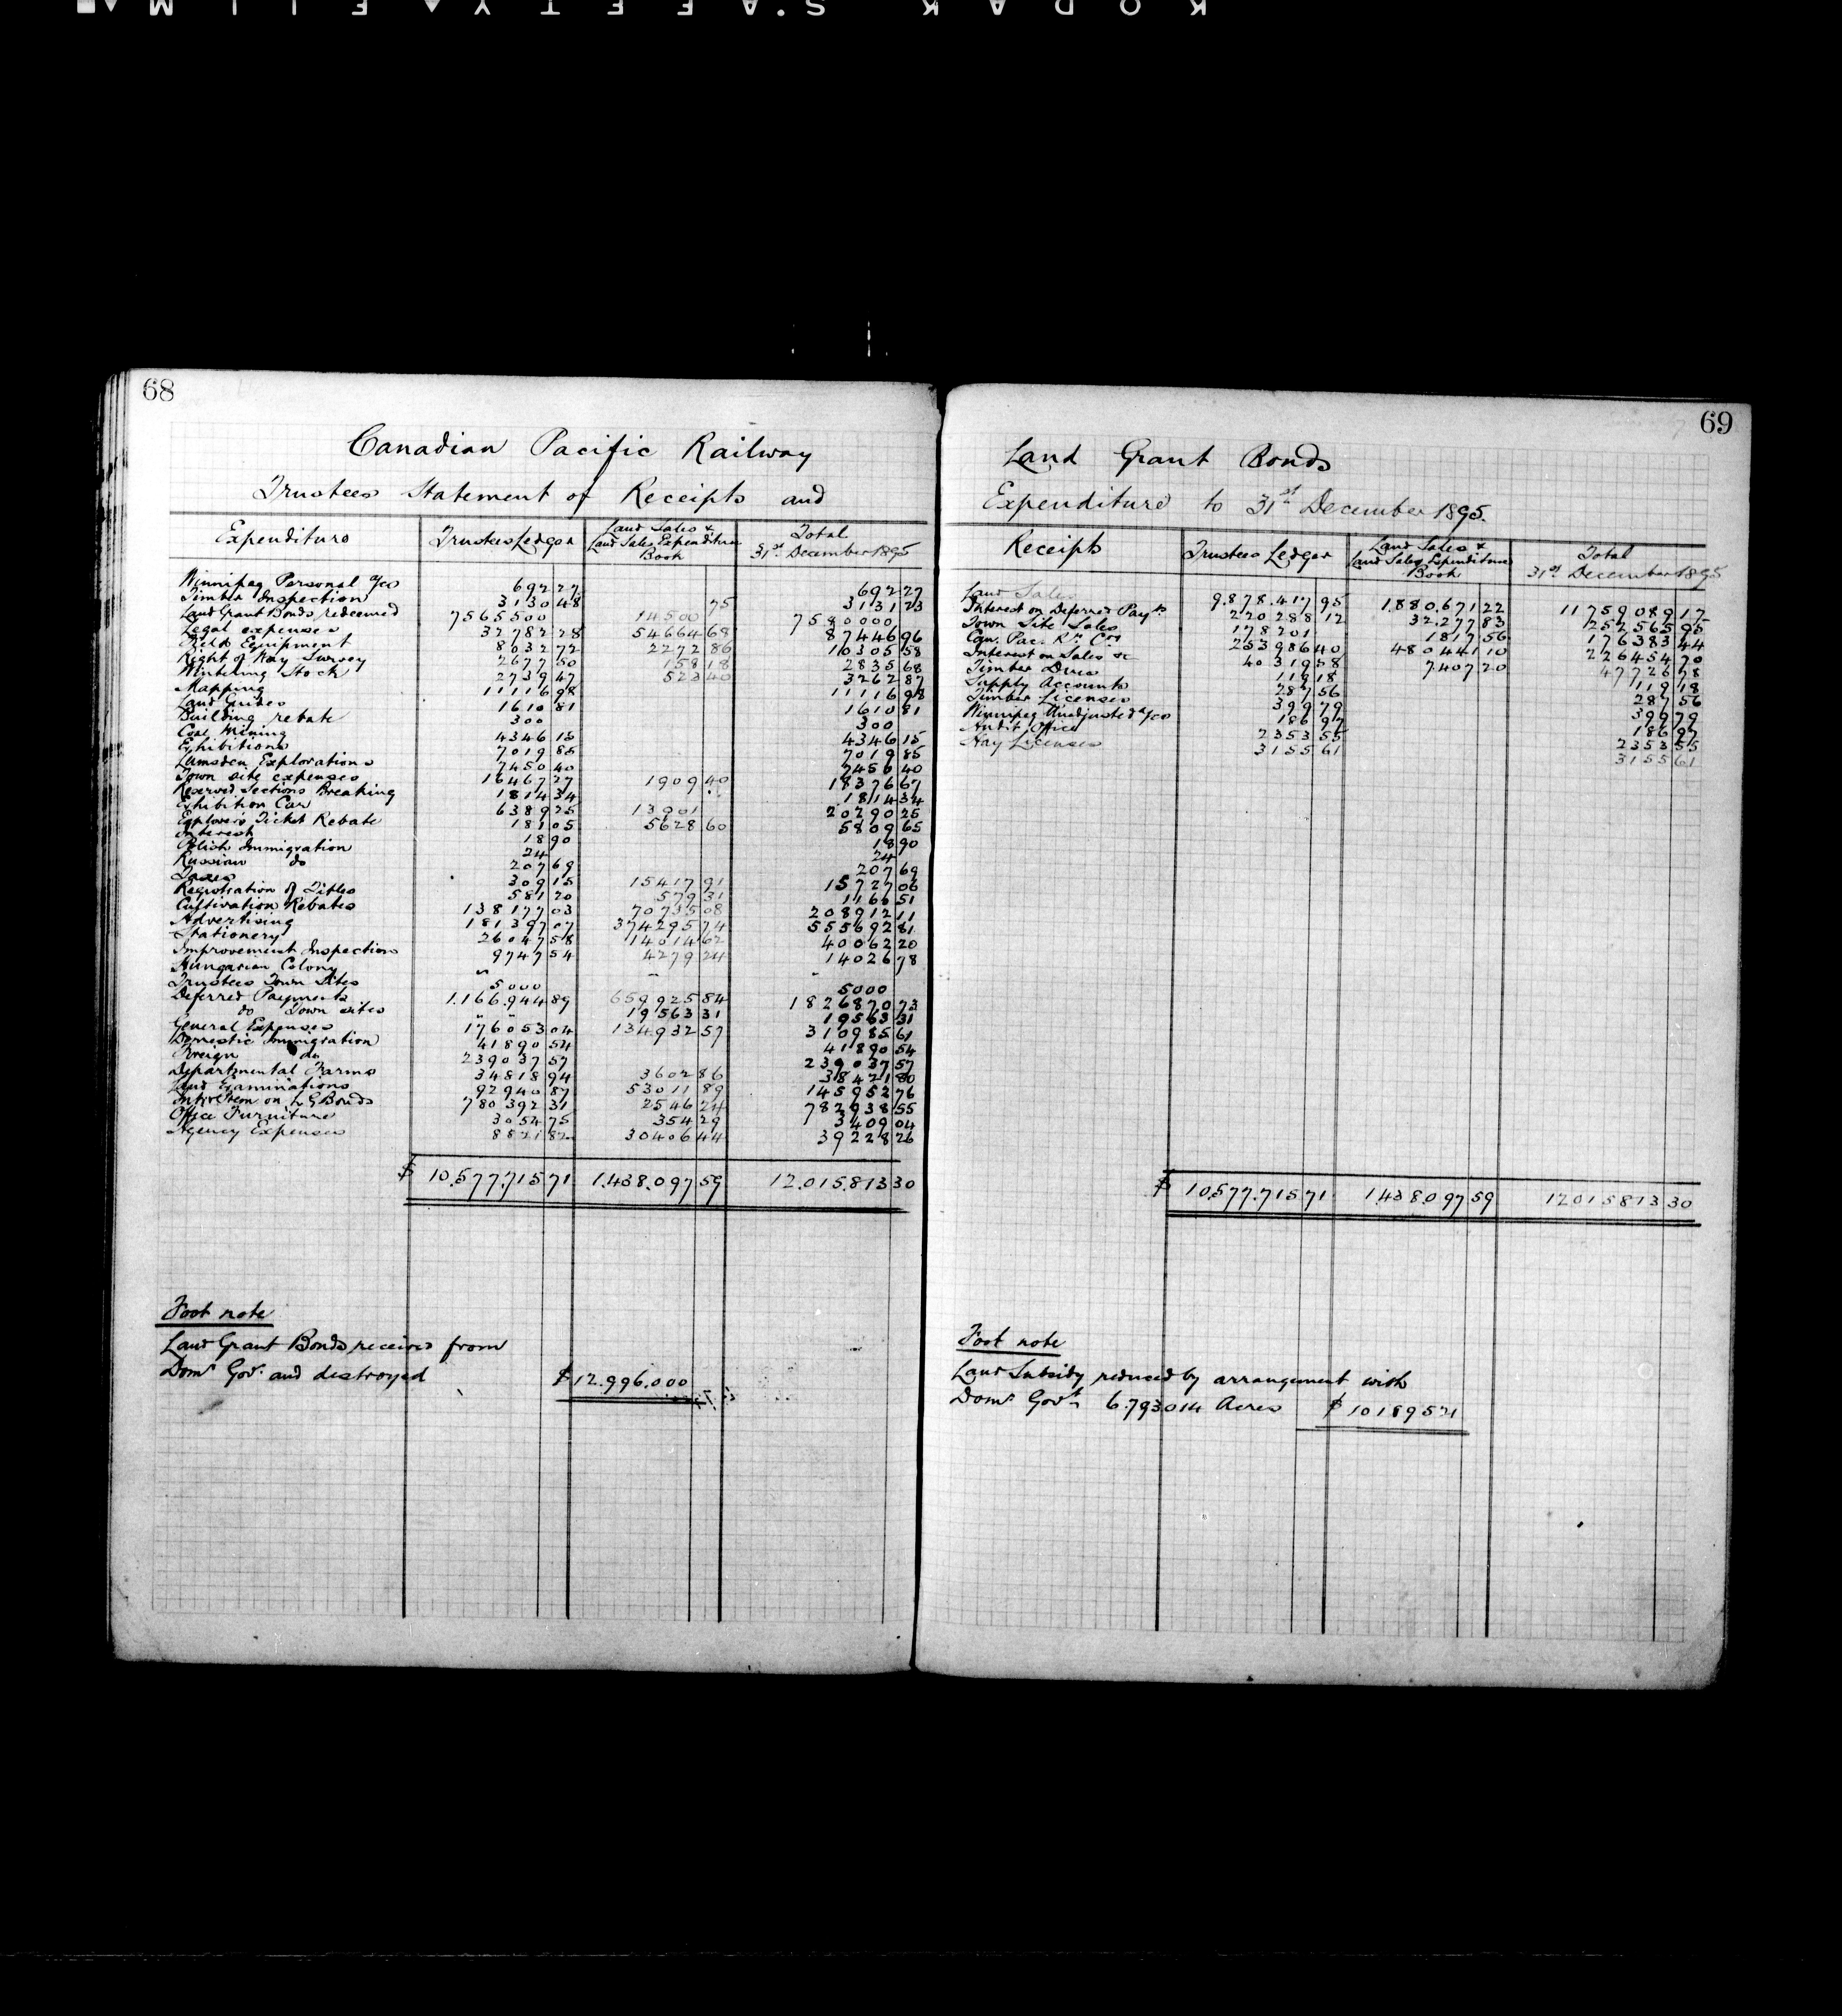 KODAK S.AFETY FILM
68
Canadian Pacific Railway
Trustees Statement of Receipts and
Expenditure Trustees Ledger Land Sales & Land Sales Expenditure Book Total 31st December 1895
Winnipeg Personal a/co 692 27 692 27
Timber Inspection 3130 48 75 3131 23
Land Grant Bonds redeemed 7565500 14500 7580000
Legal expenses 32782 28 54664 68 87446 96
Field Equipment 8032 72 2272 86 10305 58
Right of Way Survey 2677 50 158 18 2835 68
Wintering Stock 2739 47 523 40 3262 87
Mapping 11116 98 11116 98
Land Guides 1610 81 1610 81
Building rebate 300 300
Coal Mining 4346 15 4346 15
Exhibitions 7019 85 7019 85
Lumsden Explorations 7450 40 7450 40
Town site expenses 16467 27 1909 40 18376 67
Reserved Sections Breaking 1814 34 1814 34
Exhibition Car 6389 25 13901 20290 25
Explorers Ticket Rebate 181 05 5628 60 5809 65
Interest 18 90 18 90
Polish Immigration 24 24
Russian do 207 69 207 69
Taxes 309 15 15417 91 15727 06
Registration of Titles 581 20 579 31 1160 51
Cultivation Rebates 138177 03 70735 08 208912 11
Advertising 181397 07 374295 74 555692 81
Stationery 26047 58 14014 62 40062 20
Improvement Inspection 9747 54 4279 24 14026 78
Hungarian Colony
Trustees Town Sites 5000 5000
Deferred Payments 1.166.944 89 659925 84 1826870 73
do Town sites 19563 31 19563 31
General Expenses 176053 04 134932 57 310985 61
Domestic Immigration 41890 54 41890 54
Foreign do 239037 57 239037 57
Departmental Farms 34818 94 3602 86 38421 80
Land Examinations 92940 87 53011 89 145952 76
Int & Prem on L G Bonds 780392 31 2546 24 782938 55
Office Furniture 3054 75 354 29 3409 04
Agency Expenses 8821 82 30406 44 39228 26
$ 10.577.715 71 1.438.097 59 12.015.813 30
Foot note
Land Grant Bonds received from
Domn Govt. and destroyed $12.996.000
69
Land Grant Bonds
Expenditure to 31st December 1895.
Receipts Trustees Ledger Land Sales & Land Sales Expenditure Book Total 31st December 1895
Land Sales 9.878.417 95 1.880.671 22 11759089 17
Interest on Deferred Payts 220288 12 32.277 83 252565 95
Town Site Sales 178201 1817 56 176383 44
Can. Pac. Ry. Coy 253986 40 480441 10 226454 70
Interest on Sales &c 40319 58 7407 20 47726 78
Timber Dues 119 18 119 18
Supply Accounts 287 56 287 56
Timber Licenses 399 79 399 79
Winnipeg Unadjusted a/co 186 97 186 97
Audit Office 2353 55 2353 55
Hay Licenses 3155 61 3155 61
$ 10.577.715 71 1438.097 59 12015813 30
Foot note
Land Subsidy reduced by arrangement with
Domn Govt. 6.793014 Acres $ 10189521